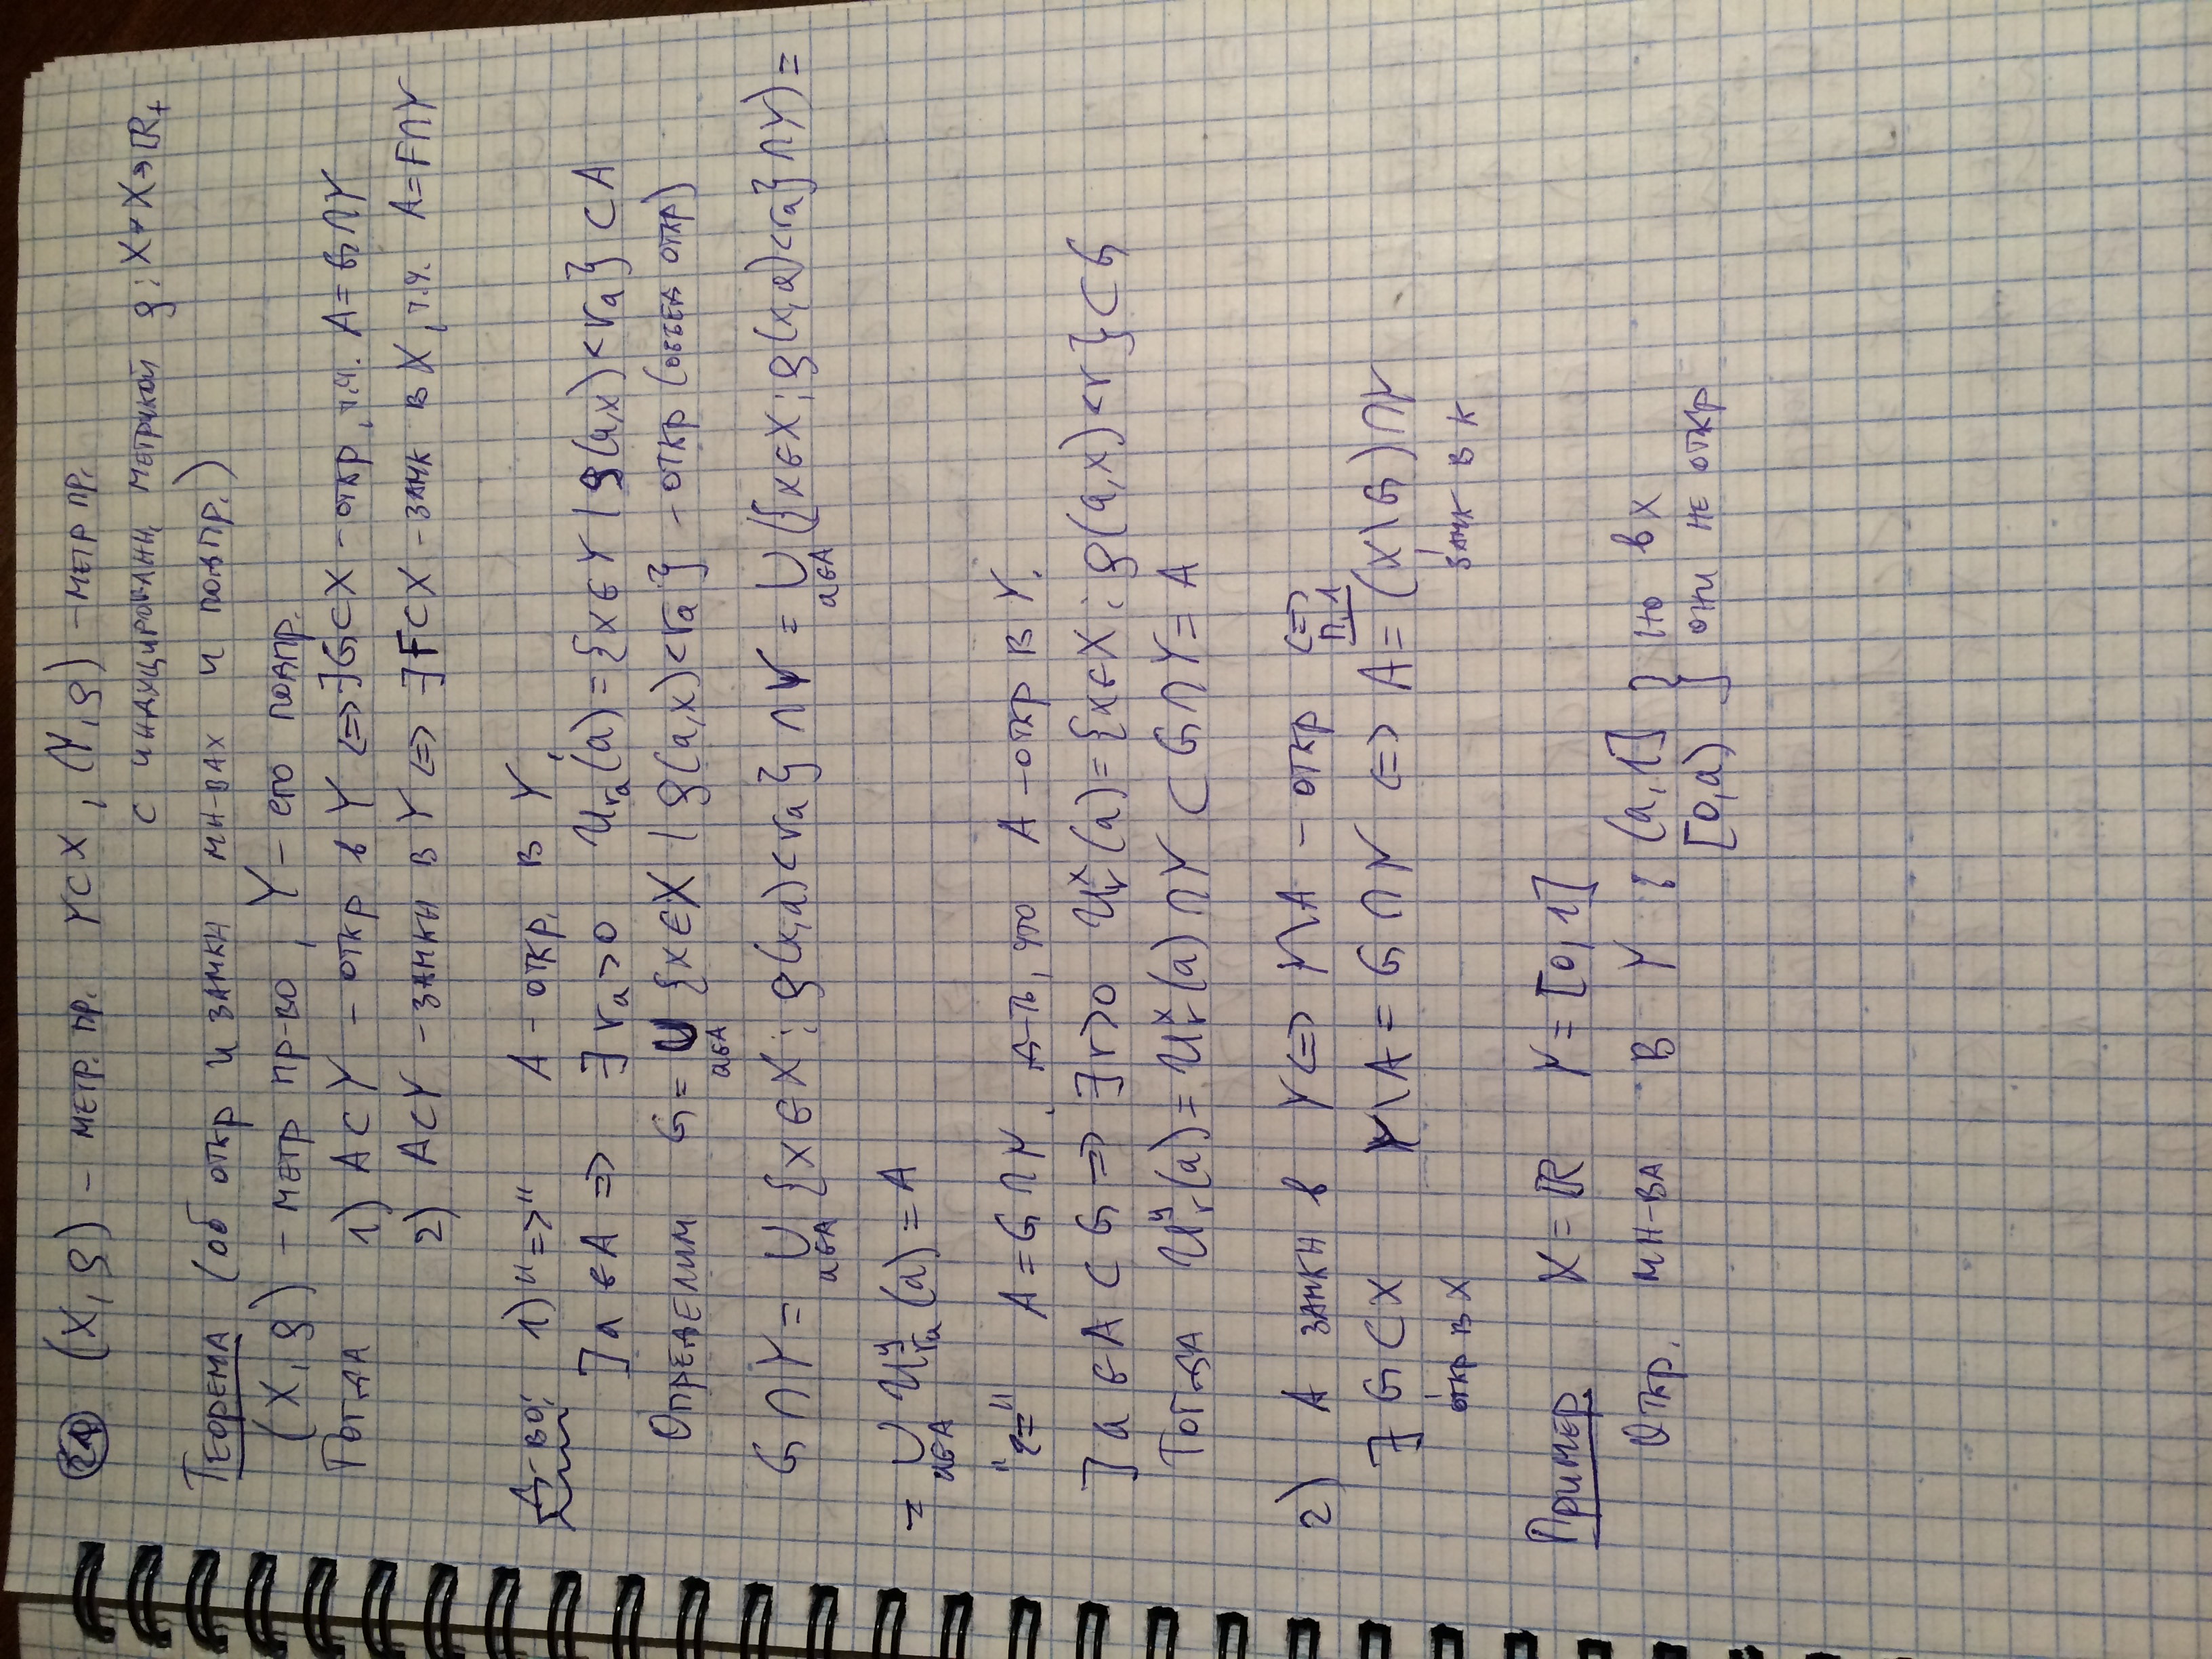 (X, ρ) – метр. пр. Y⊂X, (Y, ρ) – метр пр.
с индуцированн. метрикой ρ: X×X→ℝ₊
Теорема (об откр и замкн мн-вах и подпр.)
(X, ρ) – метр пр-во, Y – его подпр.
Тогда 1) A⊂Y – откр в Y <=> ∃G⊂X – откр, т.ч. A = G∩Y
2) A⊂Y – замкн в Y <=> ∃F⊂X – замк в X, т.ч. A=F∩Y
Д-во: 1) "=>" A – откр. в Y,
] a ∈ A => ∃ rₐ>0 U_{rₐ}(a) = {x∈Y | ρ(a,x)<rₐ} ⊂ A
Определим G = ∪_{a∈A} {x∈X | ρ(a,x)<rₐ} – откр (объед откр)
G∩Y = ∪_{a∈A} {x∈X ; ρ(x,a)<rₐ} ∩Y = ∪_{a∈A} ({x∈X ; ρ(x,a)<rₐ}∩Y) =
= ∪_{a∈A} U^Y_{rₐ}(a) = A
"<=" A = G∩Y. Д-ть, что A – откр в Y.
] a ∈ A ⊂ G => ∃ r>0 U^X_r(a) = {x∈X ; ρ(a,x)<r} ⊂ G
Тогда U^Y_r(a) = U^X_r(a) ∩Y ⊂ G∩Y = A
2) A замкн в Y <=> Y\A – откр <=>
п.1
∃ G⊂X Y\A = G∩Y <=> A = (X\G)∩Y
откр в X замк в К
Пример. X = ℝ Y = [0,1]
Откр. мн-ва в Y : (a,1] } но в X
[0,a) } они не откр